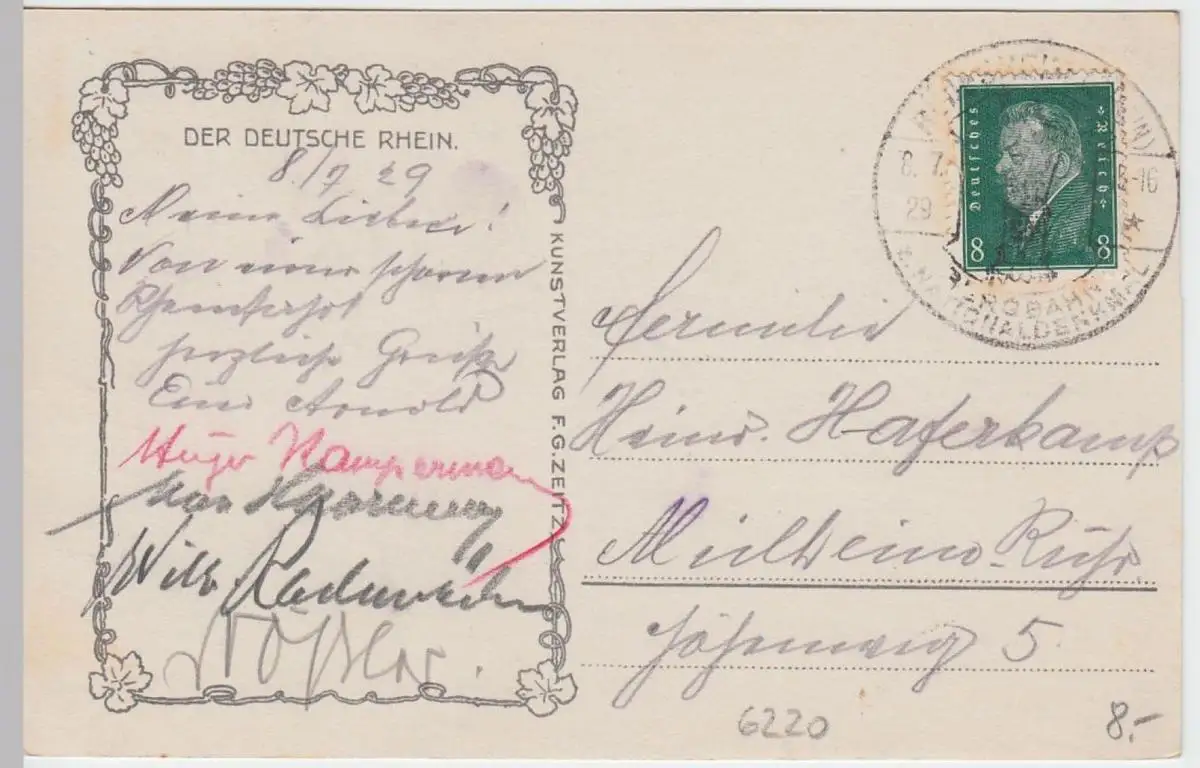 DER DEUTSCHE RHEIN.
8./7 29
Meine Lieben!
Von einer schönen
Rheinfahrt
herzliche Grüße
Euer Arnold
Hugo Kamperman
Wilh.
KUNSTVERLAG F.G. ZEITZ
Deutsches Reich
8 8
8.7. -16
29
BERGBAHN
NATIONALDENKMAL
Familie
Heinr. Haferkamp
Mülheim-Ruhr.
5
6220
8.-